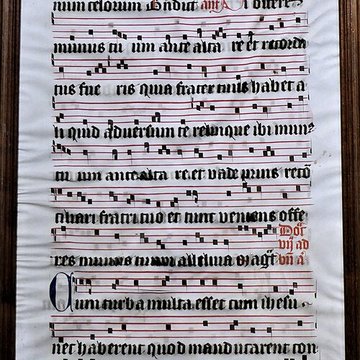 num celorum Bndict antA
munus tu um ante alta re et recorda
tus fue ris quia frater tuus habet a
li quid adversum te relinque ibi mun
tu um ante altare et vade prius reco
ciliari fratri tuo et tunc veniens offe
res munus tuum alleluia Magt Do
vij ad
Cum turba multa esset cum ihesu
nec haberent quod manducarent con